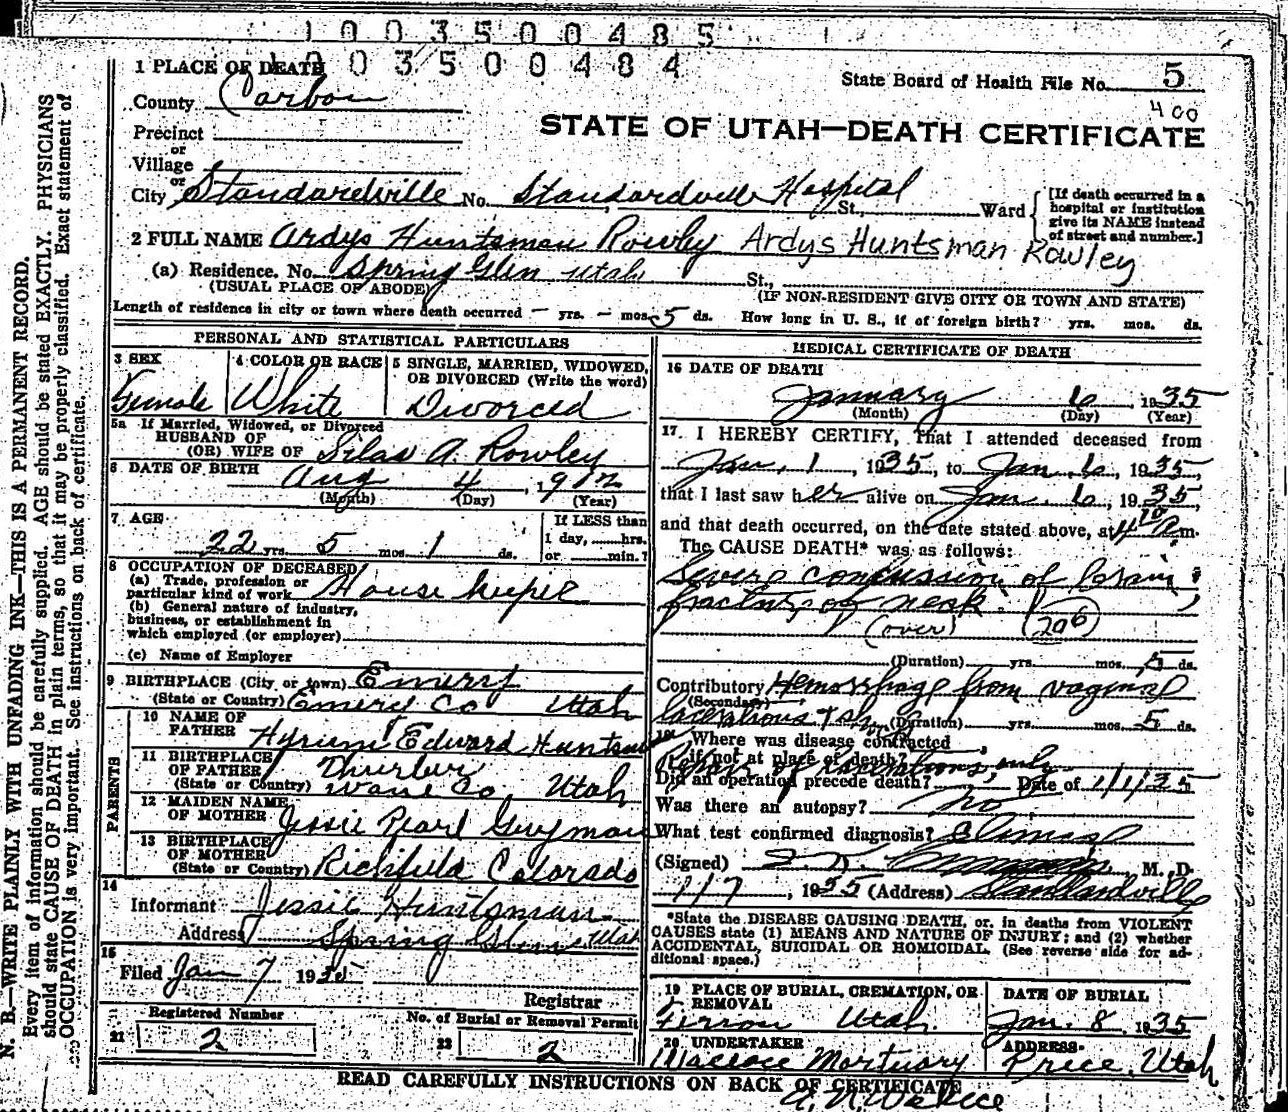 1003500485
1003500484
1 PLACE OF DEATH
State Board of Health File No. 5
County Carbon
400
STATE OF UTAH—DEATH CERTIFICATE
Precinct
or
Village
or
City Standardville No. Standardville Hospital St., Ward
[If death occurred in a
hospital or institution
give its NAME instead
of street and number.]
2 FULL NAME Ardys Huntsman Rowley Ardys Huntsman Rowley
(a) Residence. No. Spring Glen Utah St.,
(USUAL PLACE OF ABODE)
(IF NON-RESIDENT GIVE CITY OR TOWN AND STATE)
Length of residence in city or town where death occurred — yrs. — mos. 5 ds. How long in U. S., if of foreign birth? yrs. mos. ds.
PERSONAL AND STATISTICAL PARTICULARS
3 SEX
Female
4 COLOR OR RACE
White
5 SINGLE, MARRIED, WIDOWED,
OR DIVORCED (Write the word)
Divorced
5a If Married, Widowed, or Divorced
HUSBAND OF
(OR) WIFE OF Silas A. Rowley
6 DATE OF BIRTH Aug 4, 1912
(Month) (Day) (Year)
7 AGE
22 yrs 5 mos. 1 ds.
If LESS than
1 day, hrs.
or min.?
8 OCCUPATION OF DECEASED
(a) Trade, profession or
particular kind of work House keeper
(b) General nature of industry,
business, or establishment in
which employed (or employer)
(c) Name of Employer
9 BIRTHPLACE (City or town) Emery
(State or Country) Emery Co Utah
PARENTS
10 NAME OF
FATHER Hyrum Edward Huntsman
11 BIRTHPLACE
OF FATHER Thurber
(State or Country) Wane Co, Utah
12 MAIDEN NAME
OF MOTHER Jessie Pearl Guymon
13 BIRTHPLACE
OF MOTHER
(State or Country) Richfield Colorado
14
Informant Jessie Huntsman
Address Spring Glen Utah
15
Filed Jan 7 1935
Registrar
Registered Number
21 2
No. of Burial or Removal Permit
22 2
MEDICAL CERTIFICATE OF DEATH
16 DATE OF DEATH
January 6, 1935
(Month) (Day) (Year)
17. I HEREBY CERTIFY, That I attended deceased from
Jan, 1, 1935, to Jan 6, 1935,
that I last saw her alive on Jan. 6, 1935,
and that death occurred, on the date stated above, at 4 10 a m.
The CAUSE DEATH* was as follows:
Severe concussion of brain
fracture of neck.
(over) 206
(Duration) yrs. mos. 5 ds.
Contributory Hemorrhage from vaginal
(Secondary)
lacerations (Duration) yrs. mos. 5 ds.
18 Where was disease contracted
if not at place of death?
lacerations, only
Did an operation precede death? Date of 1/1/35
Was there an autopsy? no
What test confirmed diagnosis? Clinical
(Signed) M. D.
1/7, 1935 (Address) Standardville
*State the DISEASE CAUSING DEATH, or, in deaths from VIOLENT
CAUSES state (1) MEANS AND NATURE OF INJURY; and (2) whether
ACCIDENTAL, SUICIDAL OR HOMICIDAL. (See reverse side for ad-
ditional space.)
19 PLACE OF BURIAL, CREMATION, OR
REMOVAL
Ferron Utah.
DATE OF BURIAL
Jan. 8, 1935
20 UNDERTAKER
Wallace Mortuary
ADDRESS
Price, Utah
READ CAREFULLY INSTRUCTIONS ON BACK OF CERTIFICATE
A. N. Wallace
N. B.—WRITE PLAINLY WITH UNFADING INK—THIS IS A PERMANENT RECORD.
Every item of information should be carefully supplied. AGE should be stated EXACTLY. PHYSICIANS
should state CAUSE OF DEATH in plain terms, so that it may be properly classified. Exact statement of
OCCUPATION is very important. See instructions on back of certificate.